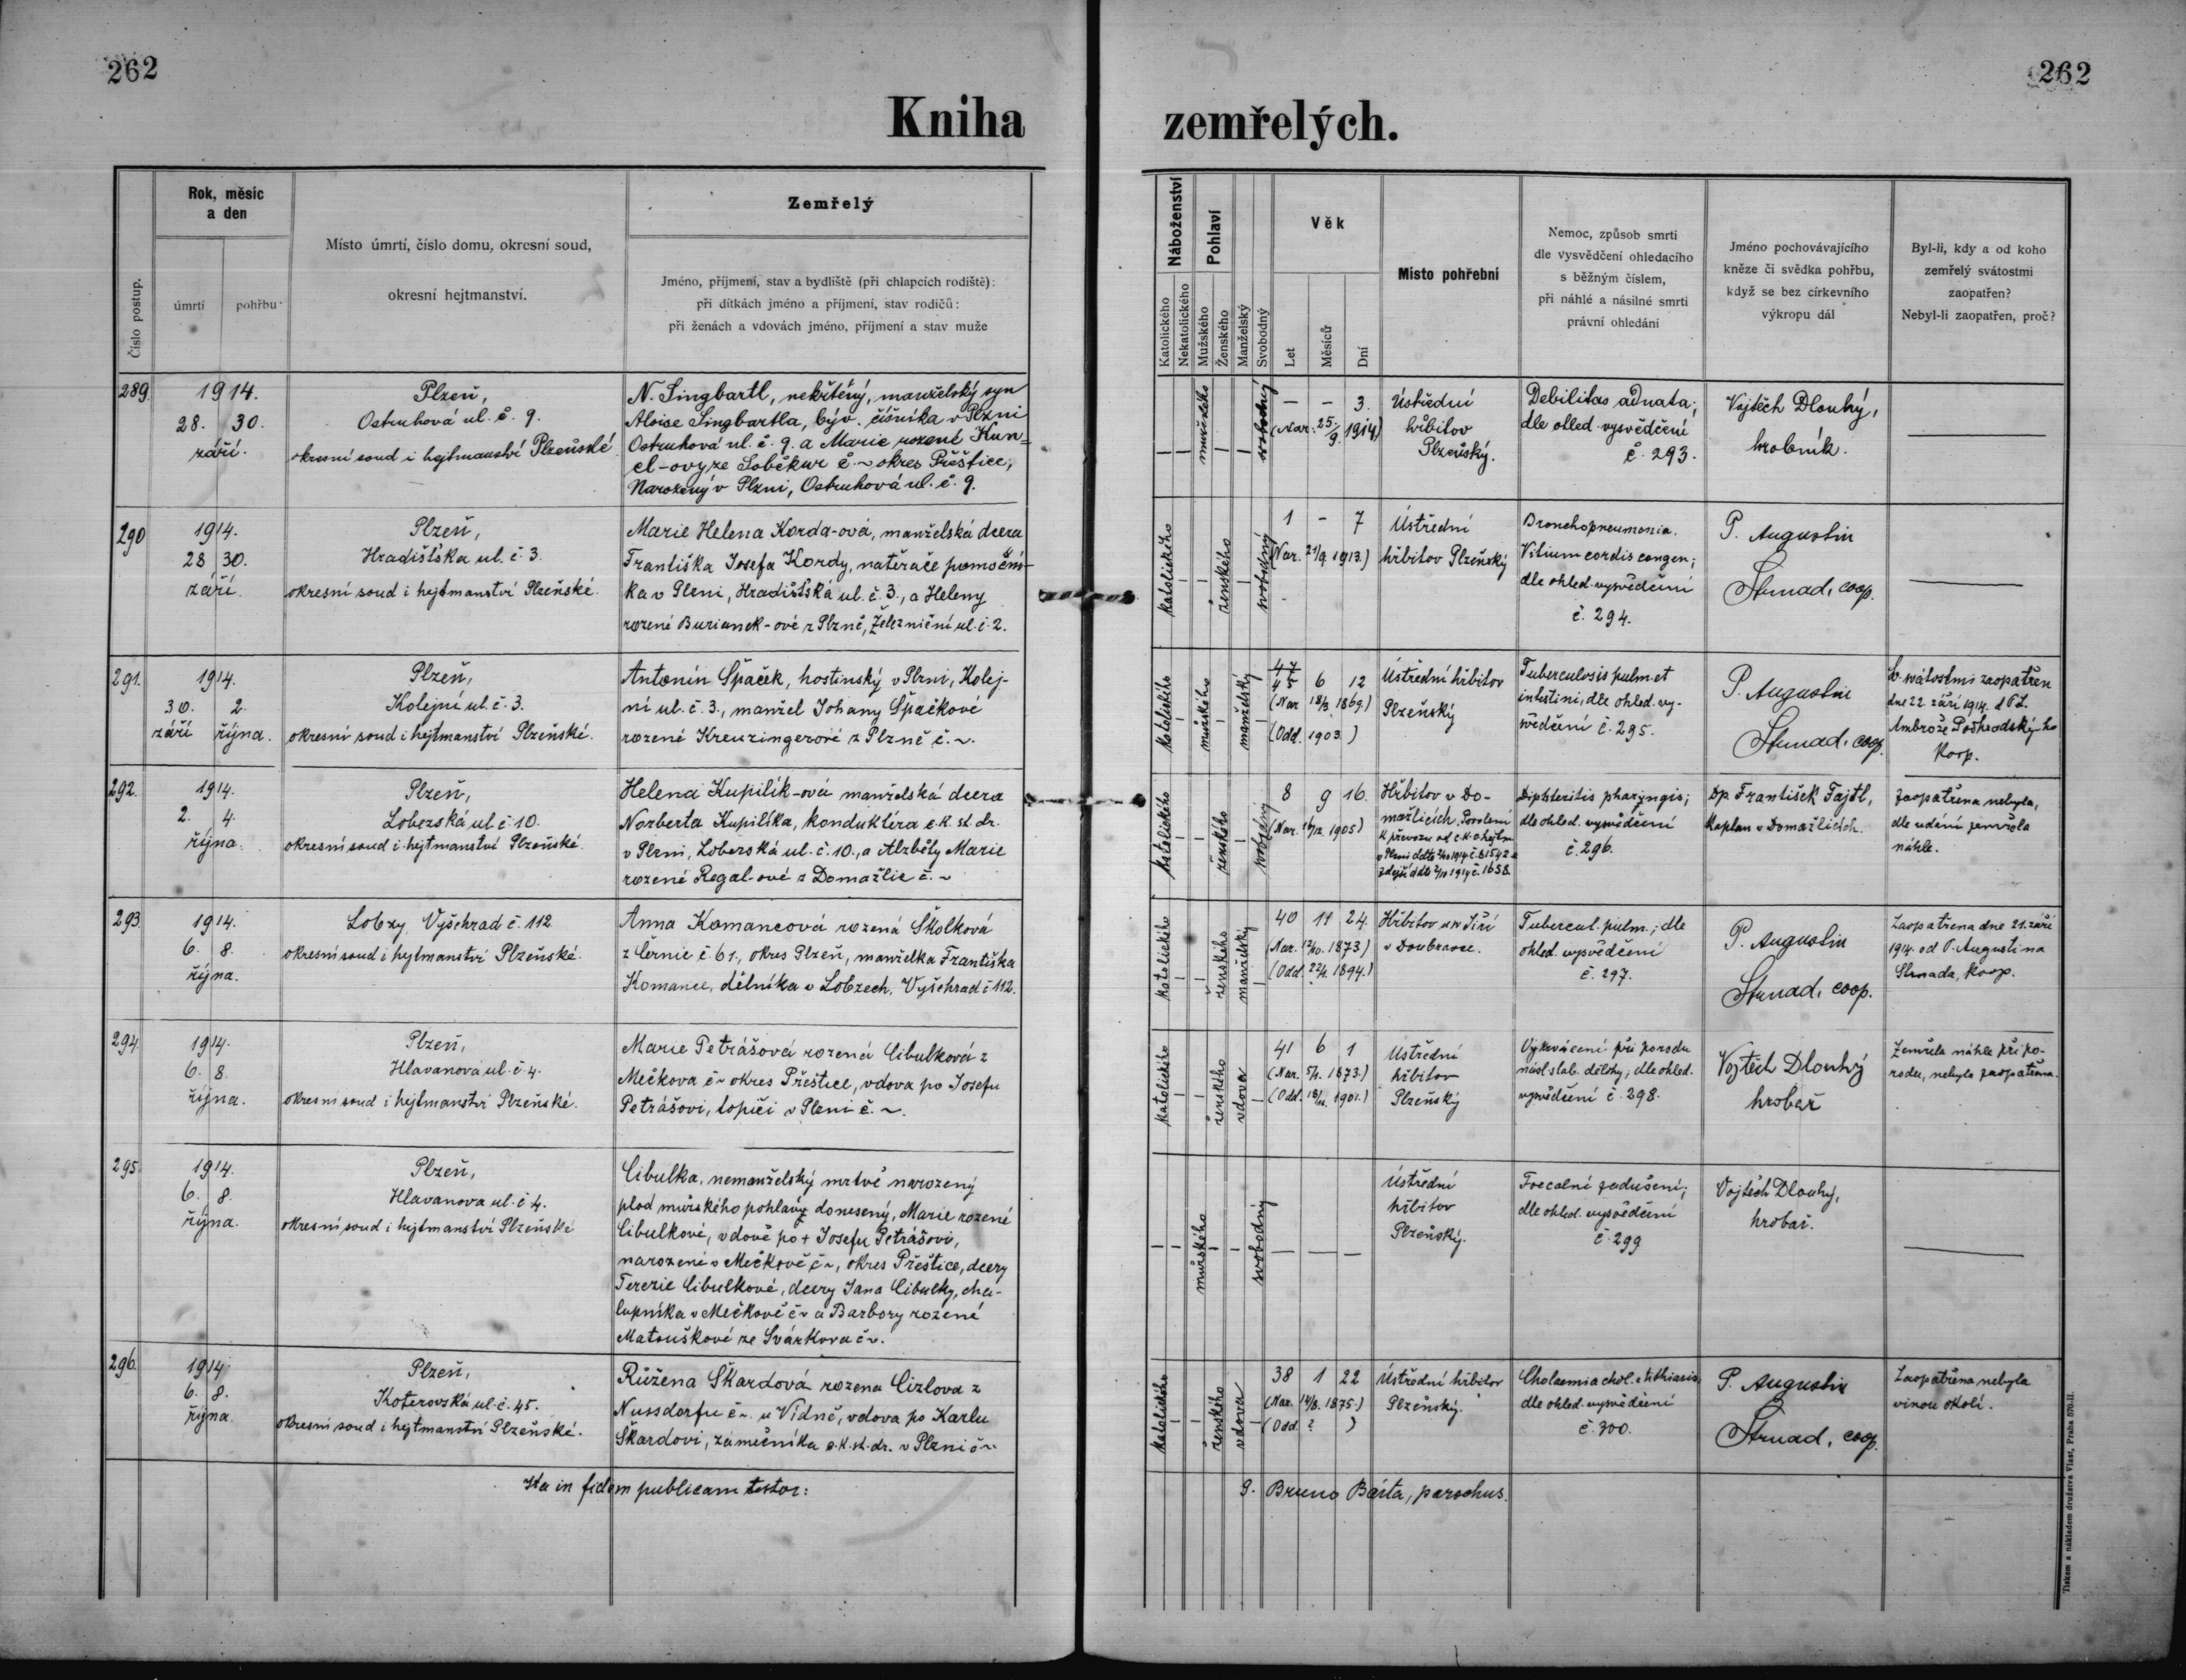 262
262
Kniha zemřelých.
Číslo postup.
Rok, měsíc
a den
úmrtí
pohřbu
Místo úmrtí, číslo domu, okresní soud,
okresní hejtmanství.
Zemřelý
Jméno, příjmení, stav a bydliště (při chlapcích rodiště):
při dítkách jméno a příjmení, stav rodičů:
při ženách a vdovách jméno, příjmení a stav muže
Náboženství
Katolického
Nekatolického
Pohlaví
Mužského
Ženského
Manželský
Svobodný
Věk
Let
Měsíců
Dní
Místo pohřební
Nemoc, způsob smrti
dle vysvědčení ohledacího
s běžným číslem,
při náhlé a násilné smrti
právní ohledání
Jméno pochovávajícího
kněze či svědka pohřbu,
když se bez církevního
výkropu dál
Byl-li, kdy a od koho
zemřelý svátostmi
zaopatřen?
Nebyl-li zaopatřen, proč?
289.
1914.
28. 30.
září.
Plzeň,
Ostruhová ul. č. 9.
okresní soud i hejtmanství Plzeňské.
N. Singbartl, nekřtěný, manželský syn
Aloise Singbartla, býv. číšníka v Plzni
Ostruhová ul. č. 9. a Marie rozené Kun-
cl-ovy ze Soběkur č. ~ okres Přeštice,
Narozený v Plzni, Ostruhová ul. č. 9.
mužského
svobodný
— — 3.
(Nar. 25./9. 1914)
Ústřední
hřbitov
Plzeňský.
Debilitas adnata;
dle ohled. vysvědčení
č. 293.
Vojtěch Dlouhý,
hrobník.
290
1914.
28 30.
září.
Plzeň,
Hradišťská ul. č. 3.
okresní soud i hejtmanství Plzeňské.
Marie Helena Korda-ová, manželská dcera
Františka Josefa Kordy, natěrače pomocní-
ka v Plzni, Hradišťská ul. č. 3., a Heleny
rozené Burianek-ové z Plzně, Železniční ul. č. 2.
katolického
ženského
svobodný
1 - 7
(Nar. 21/9. 1913.)
Ústřední
hřbitov Plzeňský
Bronchopneumonia.
Vitium cordis congen;
dle ohled. vysvědčení
č. 294.
P. Augustin
Strnad, coop.
291.
1914.
30. 2.
září října.
Plzeň,
Kolejní ul. č. 3.
okresní soud i hejtmanství Plzeňské.
Antonín Špaček, hostinský v Plzni, Kolej-
ní ul. č. 3., manžel Johany Špačkové
rozené Kreuzingerové z Plzně č. ~.
katolického
mužského
manželský
47
45 6 12
(Nar. 18/3. 1869.)
(Odd. 1903.)
Ústřední hřbitov
Plzeňský
Tuberculosis pulm. et
intestini, dle ohled. vy-
svědčení č. 295.
P. Augustin
Strnad, coop.
Sv. svátostmi zaopatřen
dne 22. září 1914. od P.
Ambrože
koop.
292.
1914.
2. 4.
října.
Plzeň,
Lobezská ul. č. 10.
okresní soud i hejtmanství Plzeňské.
Helena Kupilík-ová manželská dcera
Norberta Kupilíka, konduktéra c. k. st. dr.
v Plzni, Lobezská ul. č. 10., a Alžběty Marie
rozené Regal-ové z Domažlic č. ~
katolického
ženského
svobodný
8 9 16.
(Nar. 1905)
Hřbitov v Do-
mažlicích. Povolení
k převozu od c. k. o. hejtm.
v Plzni ddto 2/10 1914 č. 61542 a
zdejší ddto 2/10 1914 č. 1658.
Diphteritis pharyngis;
dle ohled. vysvědčení
č. 296.
Dp. František Fajtl,
Kaplan v Domažlicích.
Zaopatřena nebyla,
dle udání zemřela
náhle.
293
1914.
6. 8.
října.
Lobzy, Vyšehrad č. 112
okresní soud i hejtmanství Plzeňské.
Anna Komancová rozená Školková
z Černic č. 61., okres Plzeň, manželka Františka
Komance, dělníka v Lobzech, Vyšehrad č. 112.
katolického
ženského
manželský
40 11 24.
(Nar. 12/10. 1873)
(Odd. 1894.)
Hřbitov u sv. Jiří
v Doubravce.
Tubercul. pulm.; dle
ohled. vysvědčení
č. 297.
P. Augustin
Strnad, coop.
Zaopatřena dne 21. září
1914. od P. Augustina
Strnada, koop.
294
1914.
6. 8.
října.
Plzeň,
Hlavanova ul. č. 4.
okresní soud i hejtmanství Plzeňské.
Marie Petrášová rozená Cibulková z
Mečkova č ~ okres Přeštice, vdova po Josefu
Petrášovi, topiči v Plzni č. ~.
katolického
ženského
vdova
41 6 1
(Nar. 1873.)
(Odd. 1901.)
Ústřední
hřbitov
Plzeňský
Vykrvácení při porodu
násl. slab. dělohy; dle ohled.
vysvědčení č. 298.
Vojtěch Dlouhý
hrobař
Zemřela náhle při po-
rodu, nebyla zaopatřena.
295
1914.
6. 8.
října.
Plzeň,
Hlavanova ul. č. 4.
okresní soud i hejtmanství Plzeňské
Cibulka, nemanželský mrtvě narozený
plod mužského pohlaví, donesený, Marie rozené
Cibulkové, vdově po + Josefu Petrášovi,
narozené v Mečkově č ~, okres Přeštice, dcery
Terezie Cibulkové, dcery Jana Cibulky, cha-
lupníka v Mečkově č ~ a Barbory rozené
Matouškové ze Svárkova č ~.
mužského
svobodný
— — —
Ústřední
hřbitov
Plzeňský.
Foecalní zadušení;
dle ohled. vysvědčení
č. 299
Vojtěch Dlouhý,
hrobař.
296.
1914
6. 8.
října.
Plzeň,
Koterovská ul. č. 45.
okresní soud i hejtmanství Plzeňské.
Růžena Škardová rozena Cizlova z
Nussdorfu č ~. u Vídně, vdova po Karlu
Škardovi, zámečníka c. k. st. dr. v Plzni č ~
katolického
ženského
vdova
38 1 22
(Nar. 1875.)
(Odd. ? )
Ústřední hřbitov
Plzeňský.
Cholaemia chol. e lithiasis
dle ohled. vysvědčení
č. 300.
P. Augustin
Strnad, coop.
Zaopatřena nebyla
vinou okolí.
Ita in fidem publicam testor:
P. Bruno Bárta, parochus.
Tiskem a nákladem družstva Vlast, Praha 570-II.